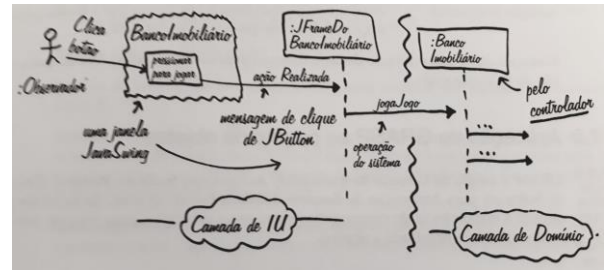 Clica
botão
:Observador
BancoImobiliário
pressionar
para jogar
uma janela
JavaSwing
ação Realizada
mensagem de clique
de JButton
:JFrameDo
BancoImobiliário
jogaJogo
operação
do sistema
:Banco
Imobiliário
pelo
controlador
...
...
Camada de IU
Camada de Domínio